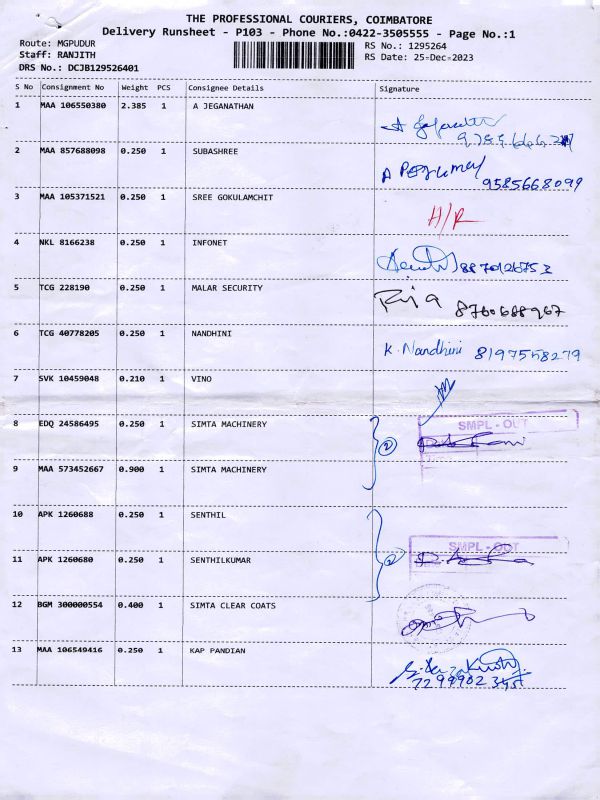 THE PROFESSIONAL COURIERS, COIMBATORE
Delivery Runsheet - P103 - Phone No.:0422-3505555 - Page No.:1
Route: MGPUDUR
RS No.: 1295264
Staff: RANJITH
RS Date: 25-Dec-2023
DRS No.: DCJB129526401
S No Consignment No Weight PCS Consignee Details Signature
1 MAA 106550380 2.385 1 A JEGANATHAN
2 MAA 857688098 0.250 1 SUBASHREE
9585668099
3 MAA 105371521 0.250 1 SREE GOKULAMCHIT H/R
4 NKL 8166238 0.250 1 INFONET
5 TCG 228190 0.250 1 MALAR SECURITY
8760688967
6 TCG 40778205 0.250 1 NANDHINI K. Nandhini 8197558279
7 SVK 10459048 0.210 1 VINO
8 EDQ 24586495 0.250 1 SIMTA MACHINERY SMPL - OUT
2
9 MAA 573452667 0.900 1 SIMTA MACHINERY
10 APK 1260688 0.250 1 SENTHIL
SMPL - OUT
11 APK 1260680 0.250 1 SENTHILKUMAR 2
12 BGM 300000554 0.400 1 SIMTA CLEAR COATS
13 MAA 106549416 0.250 1 KAP PANDIAN